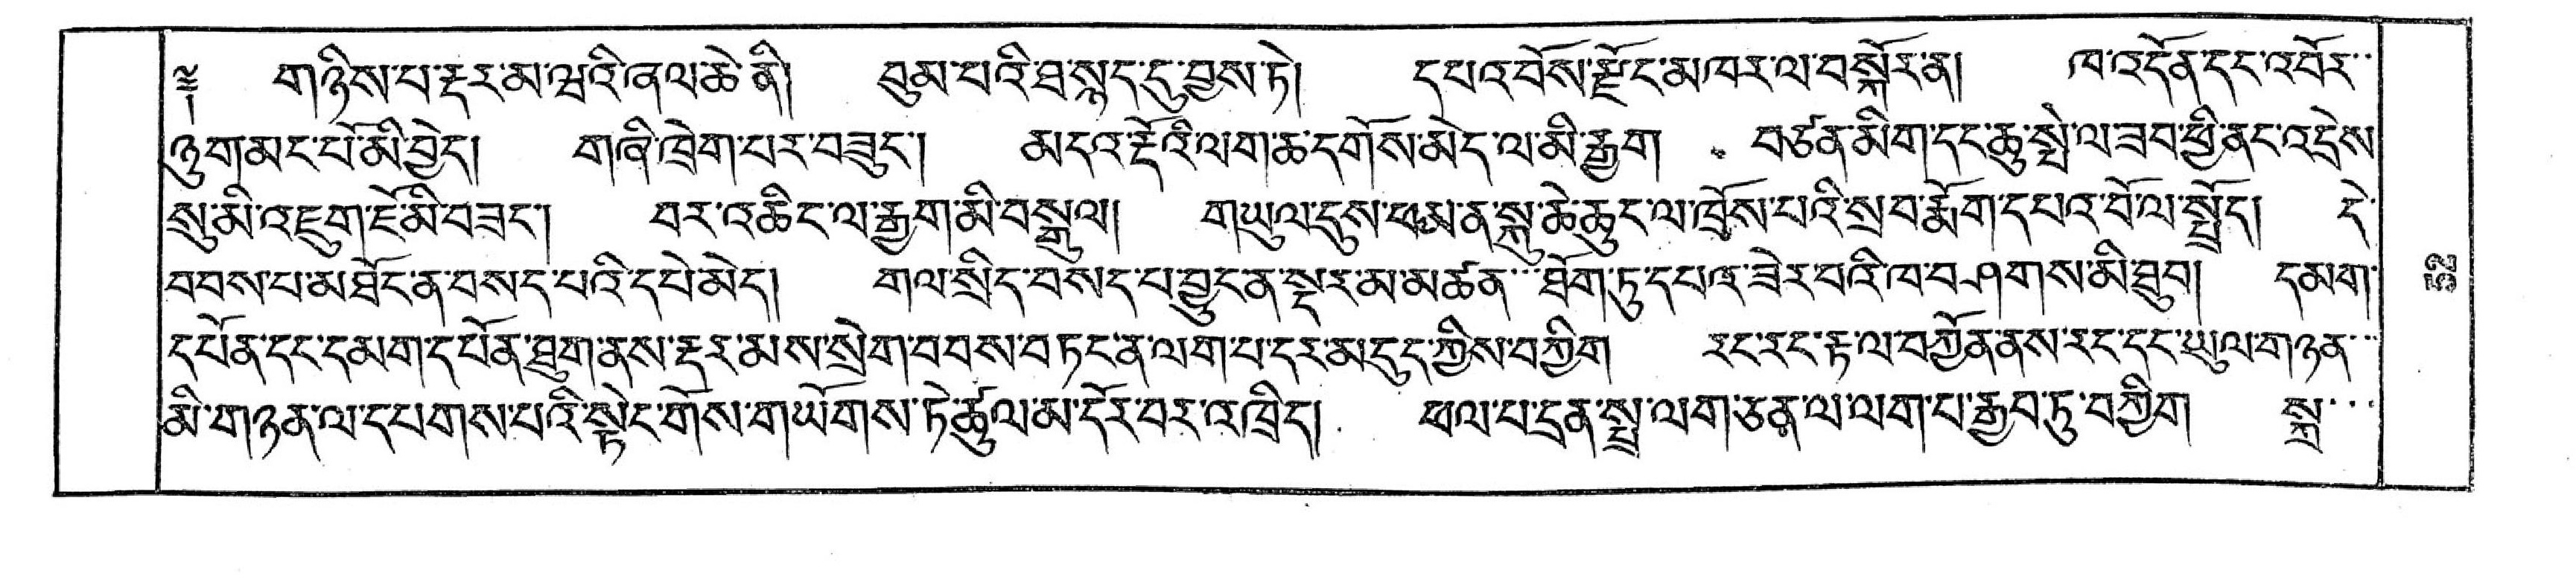 ༈ གཉིས་པ་རྡར་མ་ཝའི་ཞལ་ཆེ་ནི། བུམ་པའི་ཐ་སྙད་དུ་བྱས་ཏེ། དཔའ་བོས་རྫོང་མཁར་ལ་བསྐོར་ན། ཁ་འདོན་དང་འབོར་
ཉུག་མང་པོ་མི་བྱེད། གཞི་ཁྲེག་པར་བཟུང་། མདའ་རྡོའི་ལག་ཆ་དགོས་མེད་ལ་མི་རྒྱག བཙན་མིག་དང་ཆུ་སྤེ་ལ་ཟབ་ཕྱི་ནང་འདྲེས
སུ་མི་འཇུག་ཇོ་མི་བཟང་། བར་འཆིང་ལ་རྒྱག་མི་བསྒུལ། གཡུལ་དུས་ཕམ་ན་སྐུ་ཆེ་ཆུང་ལ་ཁྲོས་པའི་སྲབ་རྨོག་དཔའ་བོ་ལ་སྤྲོད། དེ་
བབས་པ་མ་ཐོང་ན་བསད་པའི་དཔེ་མེད། གལ་སྲིད་བསད་པ་བྱུང་ན་སྡར་མ་མཚན་ཐོག་ཏུ་དཔའ་ཟེར་བའི་ཁ་བཤགས་མི་ཐུབ། དམག་
དཔོན་དང་དམག་དཔོན་ཐུག་ནས་རྡར་མས་སྲེག་བབས་བཏང་ན་ལག་པ་དར་མདུད་ཀྱིས་བཀྱིག རང་རང་རྟ་ལ་བཀྱོན་ནས་རང་དང་ཡུལ་གཉན་
མི་གཉན་ལ་དཔགས་པའི་སྟེང་གོས་གཡོགས་ཏེ་ཚུལ་མ་དོར་བར་འཁྲིད། ཕལ་པ་དྲན་སྤྲ་ལག་ཅན་ལ་ལག་པ་རྒྱབ་ཏུ་བཀྱིག སྐྲ་